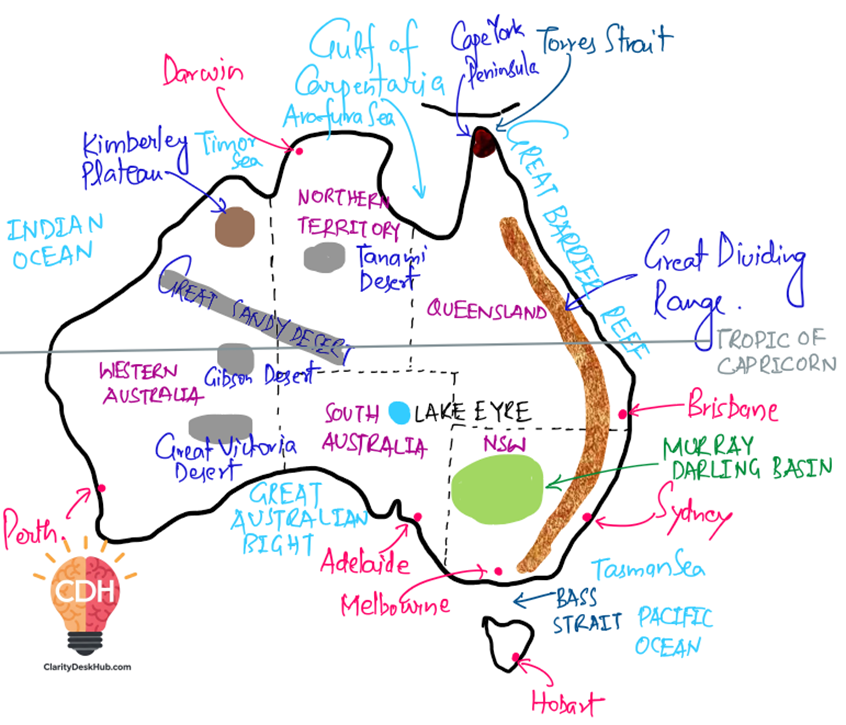 Gulf of
Carpentaria
Arafura Sea
Cape York
Peninsula
Torres Strait
Darwin
Kimberley
Plateau
Timor
Sea
INDIAN
OCEAN
NORTHERN
TERRITORY
Tanami
Desert
GREAT BARRIER REEF
Great Dividing
Range.
GREAT SANDY DESERT
QUEENSLAND
TROPIC OF
CAPRICORN
WESTERN
AUSTRALIA
Gibson Desert
SOUTH
AUSTRALIA
LAKE EYRE
Brisbane
Great Victoria
Desert
NSW
MURRAY
DARLING BASIN
Perth.
GREAT
AUSTRALIAN
BIGHT
Adelaide
Melbourne
Sydney
Tasman Sea
BASS
STRAIT
PACIFIC
OCEAN
Hobart
CDH
ClarityDeskHub.com